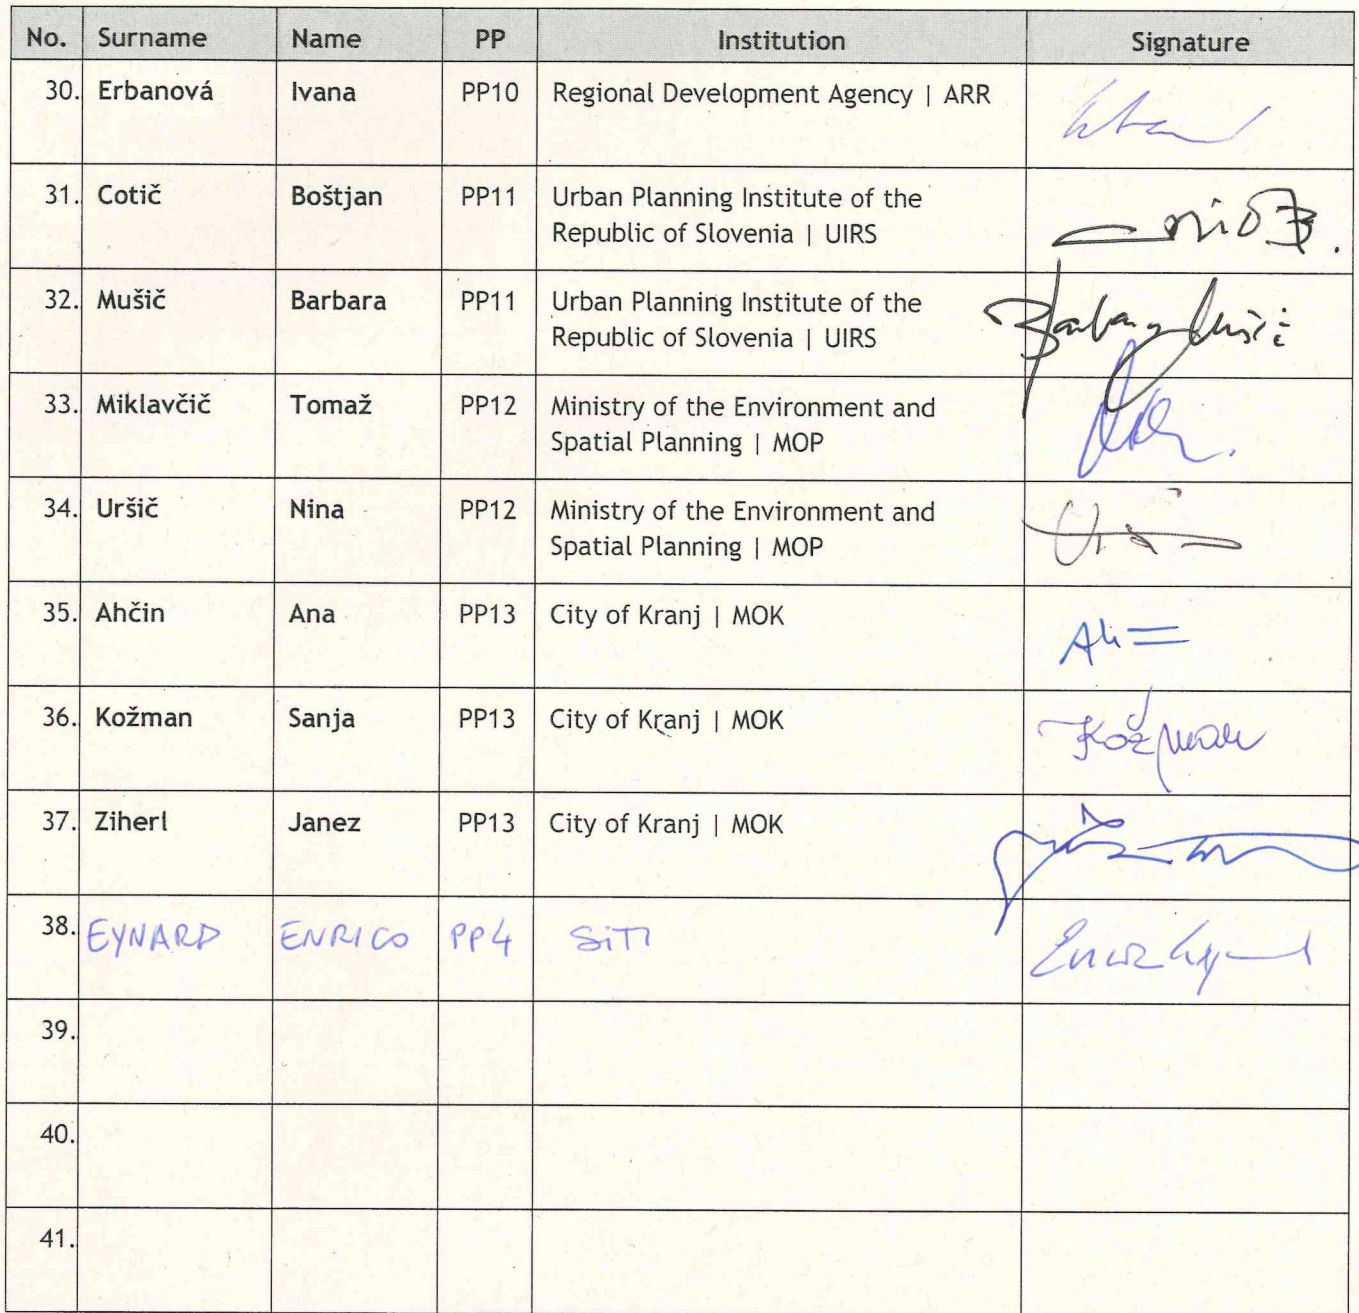 No. Surname Name PP Institution Signature
30. Erbanová Ivana PP10 Regional Development Agency | ARR
31. Cotič Boštjan PP11 Urban Planning Institute of the
Republic of Slovenia | UIRS
32. Mušič Barbara PP11 Urban Planning Institute of the
Republic of Slovenia | UIRS Barbara Mušič
33. Miklavčič Tomaž PP12 Ministry of the Environment and
Spatial Planning | MOP
34. Uršič Nina PP12 Ministry of the Environment and
Spatial Planning | MOP
35. Ahčin Ana PP13 City of Kranj | MOK
36. Kožman Sanja PP13 City of Kranj | MOK Kožman
37. Ziherl Janez PP13 City of Kranj | MOK
38. EYNARD ENRICO PP4 SiTI
39.
40.
41.